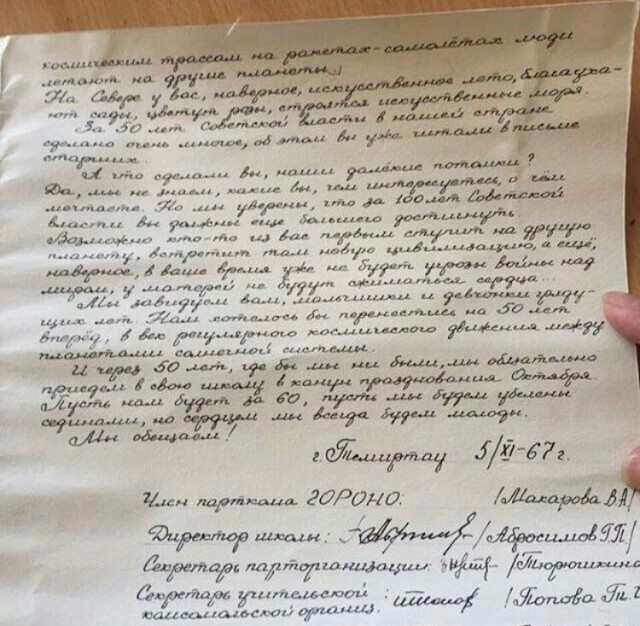 космическим трассам на ракетах-самолётах люди
летают на другие планеты.
На Севере у вас, наверное, искусственное лето, благауха-
ют сады, цветут розы, строятся искусственные моря.
За 50 лет Советской власти в нашей стране
сделано очень многое, об этом вы уже читали в письме
старших.
А что сделали вы, наши далёкие потомки?
Да, мы не знаем, какие вы, чем интересуетесь, о чём
мечтаете. Но мы уверены, что за 100 лет Советской
власти вы должны еще большего достигнуть.
Возможно кто-то из вас первым ступит на другую
планету, встретит там новую цивилизацию, а ещё,
наверное, в ваше время уже не будет угрозы войны над
миром, у матерей не будут сжиматься сердца...
Мы завидуем вам, мальчишки и девчонки гряду-
щих лет. Нам хотелось бы перенестись на 50 лет
вперёд, в век регулярного космического движения между
планетами солнечной системы.
И через 50 лет, где бы мы ни были, мы обязательно
приедем в свою школу в канун празднования Октября.
Пусть нам будет за 60, пусть мы будем убелены
сединами, но сердцем мы всегда будем молоды.
Мы обещаем!
г. Темиртау 5/XI-67 г.
Член парткома ГОРОНО: /Макарова В.А/
Директор школы: /Абросимов Г.П./
Секретарь парторганизации: /Тюрюшкина
Секретарь учительской : /Попова
комсомольской организ.